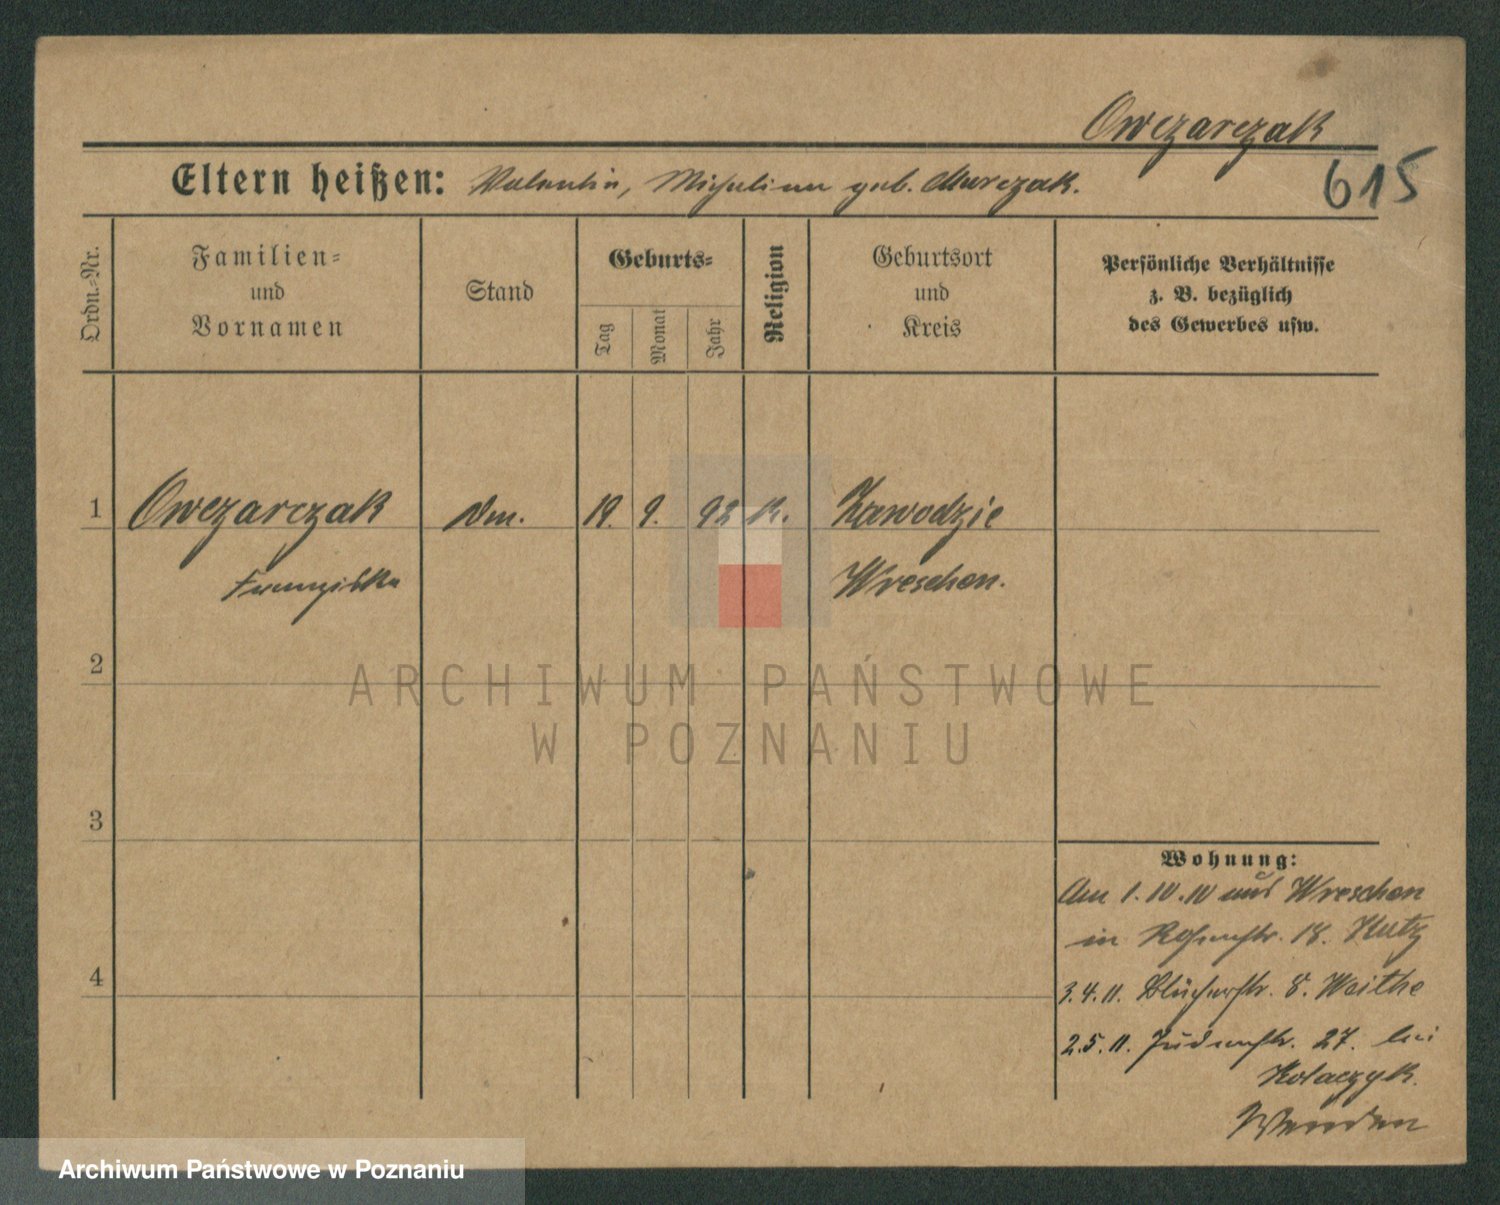 Owczarczak
615
Eltern heißen: Valentin, Michalina geb. Marczak.
Ordn.-Nr.
Familien-
und
Vornamen
Stand
Geburts-
Tag
Monat
Jahr
Religion
Geburtsort
und
Kreis
Persönliche Verhältnisse
z. B. bezüglich
des Gewerbes usw.
1 Owczarczak 19. 9. 92 K. Zawodzie
Franziska Wreschen.
2
3
4
Wohnung:
Am 1.10.10 aus Wreschen
in 18. Kutz
3.4.11. Blücherstr. 8. Weithe
2.5.11. Judenstr. 27. bei
Kolaczyk.
Wenden
ARCHIWUM PAŃSTWOWE
W POZNANIU
Archiwum Państwowe w Poznaniu